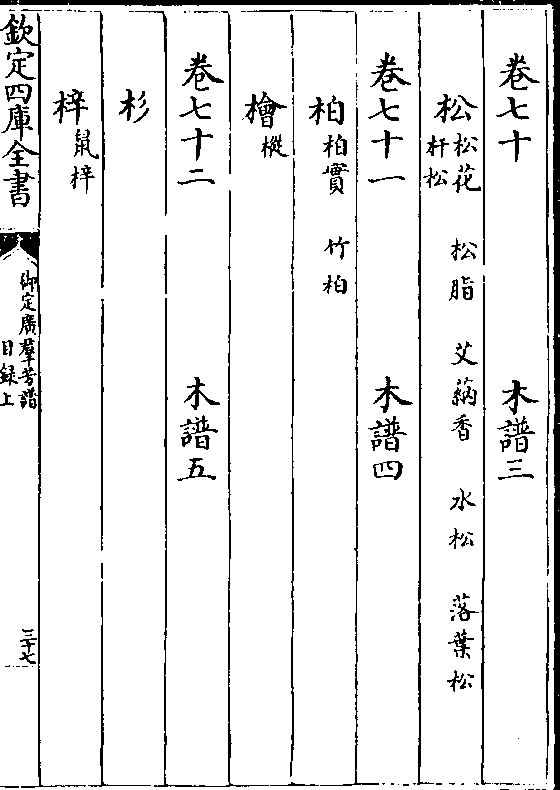 卷七十　木譜三
松 松花　松脂　艾蒳香　水松　落葉松
杆松
卷七十一　木譜四
柏 柏實　竹柏
檜 樅
卷七十二　木譜五
杉
梓 鼠梓
欽定四庫全書
御定廣羣芳譜
目錄上
三十七